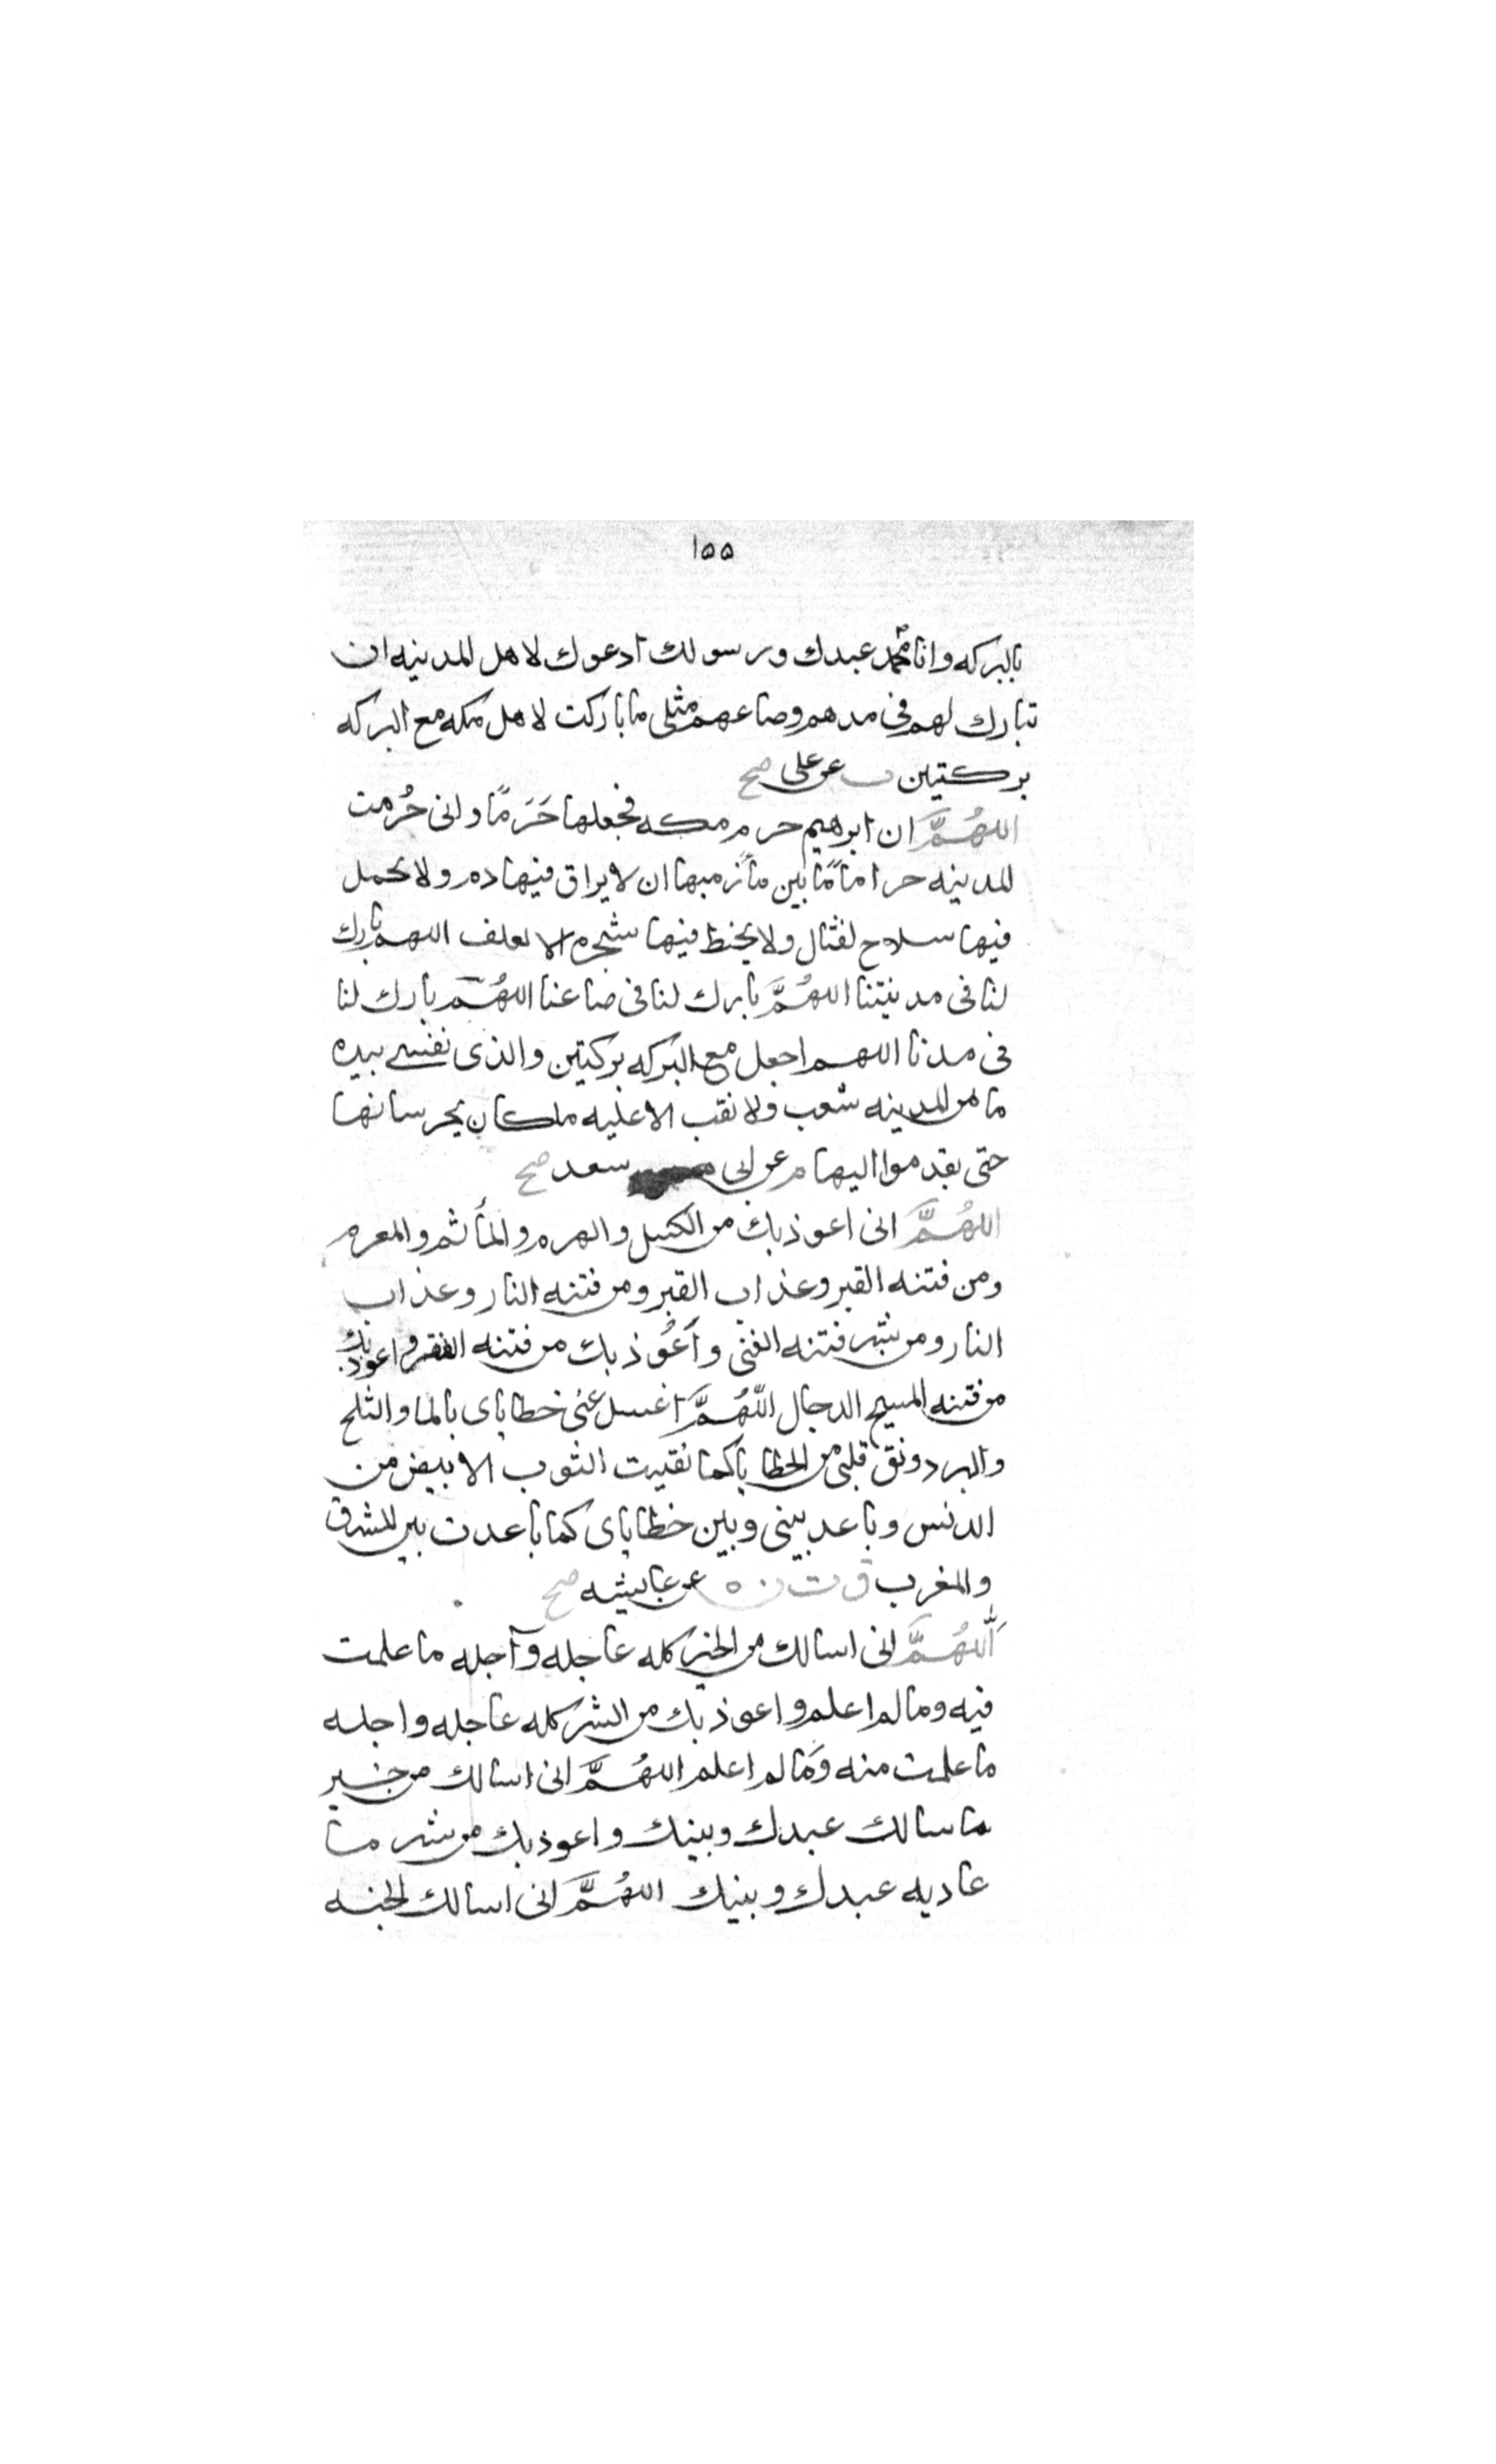 ١٥٥
بالبركه وانا محمد عبدك ورسولك ادعوك لاهل المدينه ان
تبارك لهم فى مدهم وصاعهم مثلى ما باركت لاهل مكه مع البركه
بركتين ت عن على صح
اللهُمَّ ان ابرهيم حرم مكه فجعلها حَرَمًا وانى حُرمت
المدينه حراما ما بين مأزميها ان لا يراق فيها دم ولا يحمل
فيها سلاح لقتال ولا يخبط فيها شجره الا لعلف اللهم بارك
لنا فى مدينتنا اللهُمَّ بارك لنا فى صاعنا اللهُمَّ بارك لنا
فى مدنا اللهم اجعل مع البركه بركتين والذى نفسى بيده
ما من المدينه شعب ولا نقب الا عليه ملكان يحرسانها
حتى يقدموا اليها م عن ابى سعد صح
اللهُمَّ انى اعوذ بك من الكسل والهرم والمأثم والمغرم
ومن فتنه القبر وعذاب القبر ومن فتنه النار وعذاب
النار ومن شر فتنه الغنى وأَعُوذ بك من فتنه الفقر واعوذ بك
من فتنه المسيح الدجال اللّهُمَّ اغسل عنى خطاياى بالما والثلج
والبرد ونق قلبى من الخطايا كما نقيت الثوب الابيض من
الدنس وباعد بينى وبين خطاياى كما باعدت بين المشرق
والمغرب ق ت ن ه عن عايشه صح
اَللّهُمَّ انى اسالك من الخير كله عاجله وآجله ما علمت
فيه وما لم اعلم واعوذ بك من الشر كله عاجله واجله
ما علمت منه وَما لم اعلم اللهُمَّ انى اسالك من خير
ما سالك عبدك وبنيك واعوذ بك من شر ما
عاد به عبدك وبنيك اللهُمَّ انى اسالك الجنه